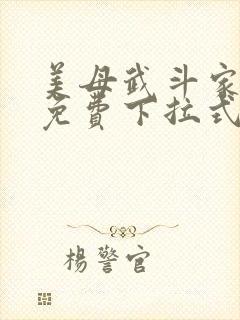 美母武斗家
免費下拉式
楊警官